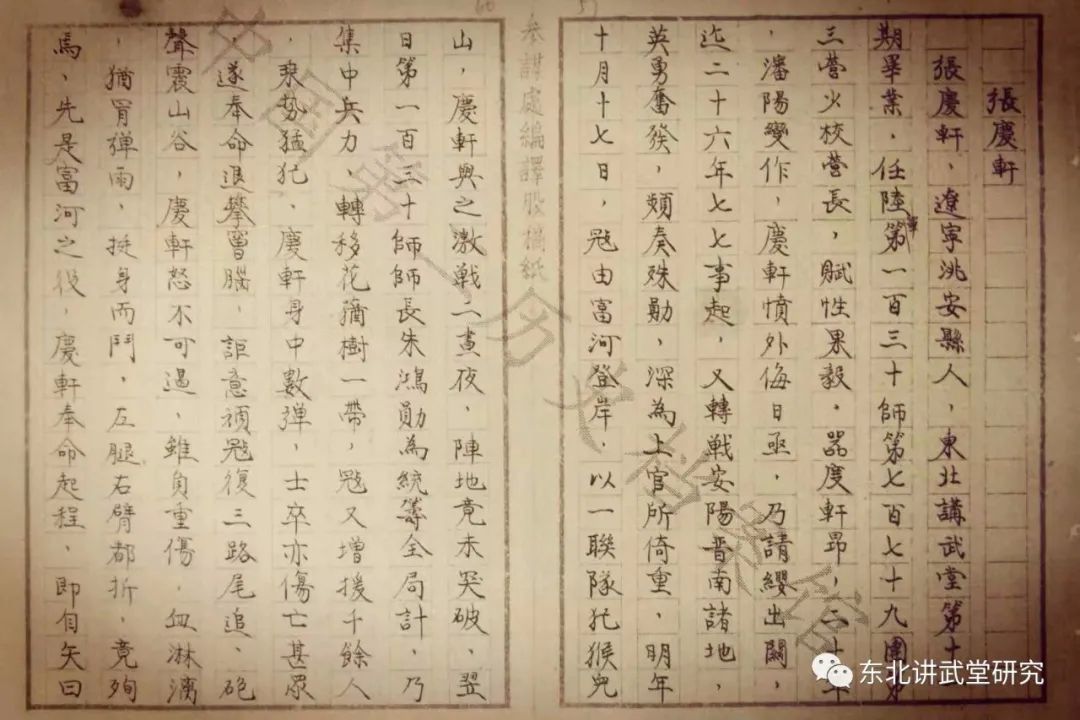 張慶軒
張慶軒，遼寧洮安縣人，東北講武堂第十
期畢業，任陸軍第一百三十師第七百七十九團第
三營少校營長，賦性果毅。器度軒昂，二十年
，瀋陽變作，慶軒憤外侮日亟，乃請纓出關，
迄二十六年七七事起，又轉戰安陽晋南諸地，
英勇奮發，頻奏殊勛，深為上官所倚重，明年
十月十七日，寇由富河登岸，以一聯隊犯猴兒
参謀處編譯股稿紙
山，慶軒與之激戰二晝夜，陣地竟未突破，翌
日第一百三十師師長朱鴻勛為統籌全局計，乃
集中兵力，轉移花蘅樹一帶，寇又增援千餘人
，乘勢猛犯、慶軒身中數弹，士卒亦傷亡甚眾
，遂奉命退攀曾腦，詎意頑寇復三路尾追、砲
聲震山谷，慶軒怒不可遏，雖負重傷，血淋漓
，猶冒弹雨，挺身而鬥，左腿右臂都折，竟殉
焉，先是富河之役，慶軒奉命起程、即自矢曰
中國第二历史档案馆
东北讲武堂研究